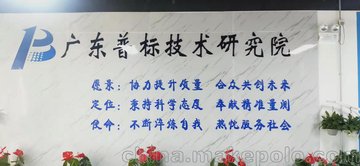 广东普标技术研究院
愿景：协力提升质量 合众共创未来
定位：秉持科学态度 奉献精准量测
使命：不断淬练自我 热忱服务社会
china.makepolo.com